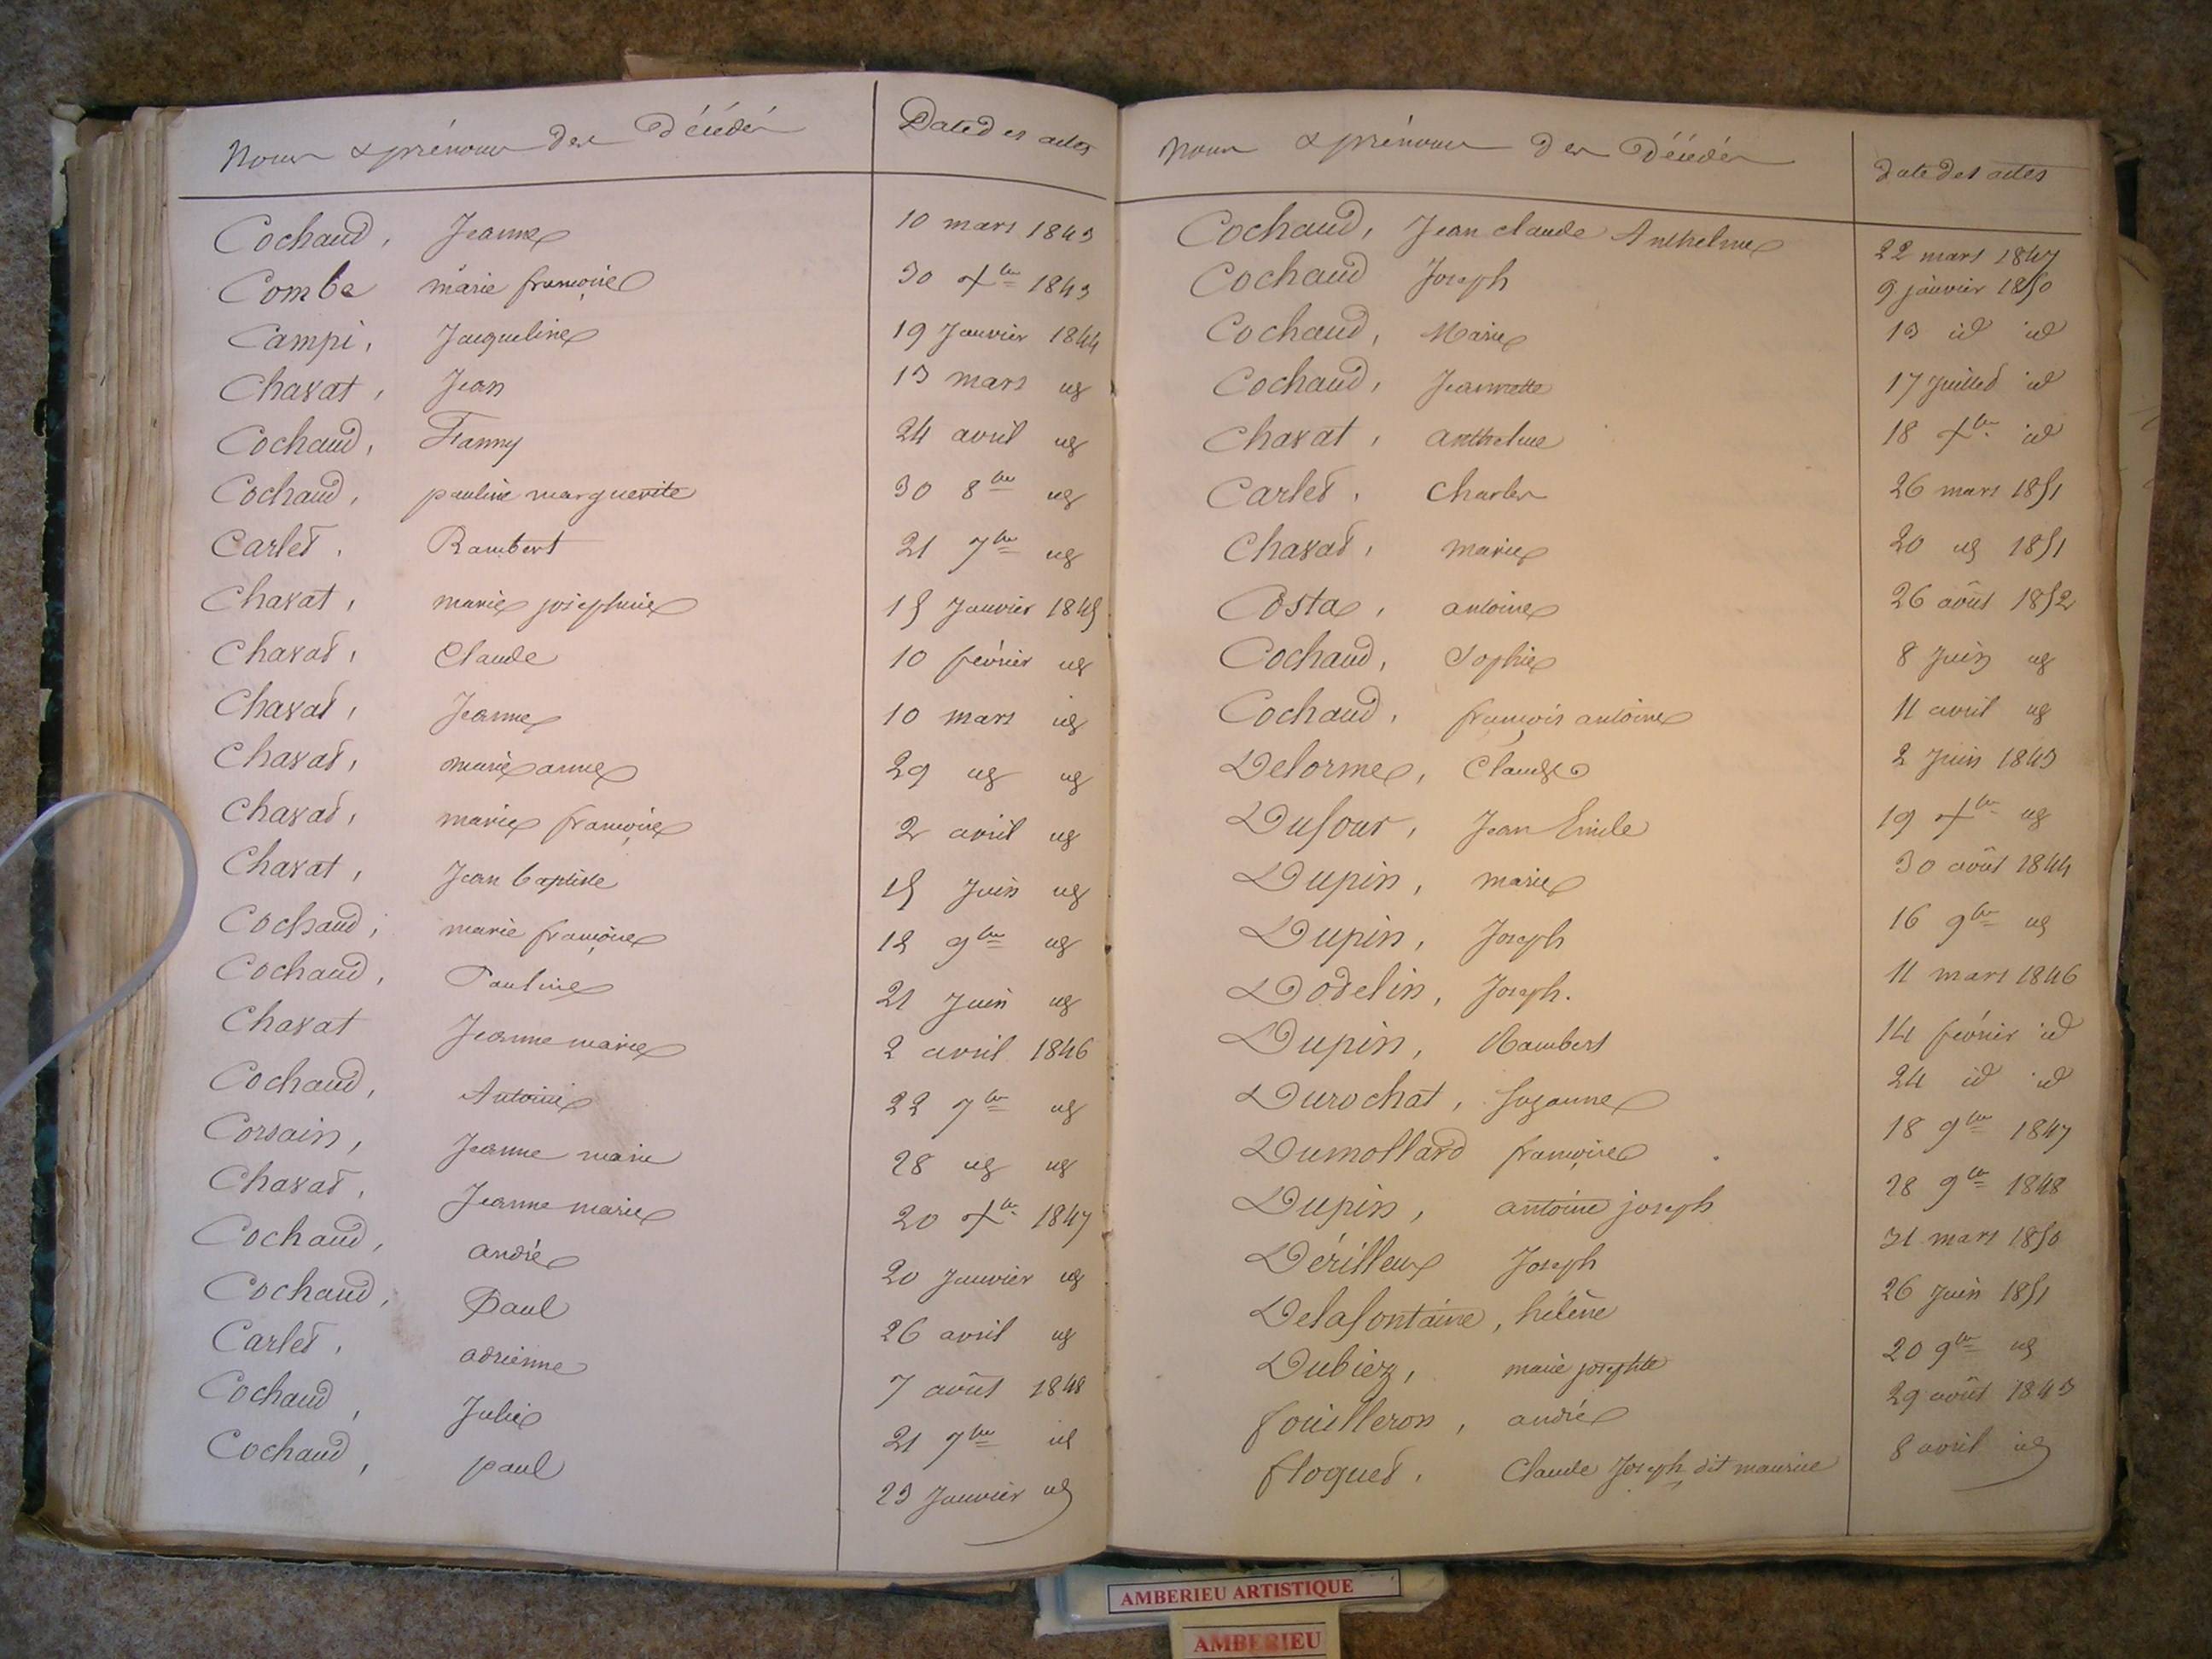 Noms & prénoms des Décédés Date des actes
Cochaud, Jeanne 10 mars 1843
Combe marie françoise 30 Xbre 1843
Campi, Jacqueline 19 Janvier 1844
Chavat, Jean 13 mars id
Cochaud, Fanny 24 avril id
Cochaud, pauline marguerite 30 8bre id
Carlet, Rambert 21 7bre id
Chavat, marie joséphine 15 Janvier 1845
Chavat, Claude 10 février id
Chavat, Jeanne 10 mars id
Chavat, marie anne 29 id id
Chavat, marie françoise 2 avril id
Chavat, Jean baptiste 15 Juin id
Cochaud, marie françoise 12 9bre id
Cochaud, Pauline 21 Juin id
Chavat Jeanne marie 2 avril 1846
Cochaud, Antoine 22 7bre id
Corsain, Jeanne marie 28 id id
Chavat, Jeanne marie 20 Xbre 1847
Cochaud, andré 20 Janvier id
Cochaud, Paul 26 avril id
Carlet, adrienne 7 août 1848
Cochaud, Julie 21 7bre id
Cochaud, paul 23 Janvier id
Noms & prénoms des Décédés date des actes
Cochaud, Jean claude Anthelme 22 mars 1847
Cochaud Joseph 9 janvier 1850
Cochaud, Marie 13 id id
Cochaud, Jeannette 17 Juillet id
Chavat, anthelme 18 Xbre id
Carlet, Charles 26 mars 1851
Chavat, marie 20 id 1851
Costa, antoine 26 août 1852
Cochaud, Sophie 8 Juin id
Cochaud, françois antoine 11 avril id
Delorme, Claude 2 Juin 1843
Dufour, Jean Emile 19 Xbre id
Dupin, marie 30 août 1844
Dupin, Joseph 16 9bre id
Dodelin, Joseph. 11 mars 1846
Dupin, Rambert 14 février id
Durochat, Suzanne 24 id id
Dumollard françoise 18 9bre 1847
Dupin, antoine joseph 28 9bre 1848
Dérilleux Joseph 31 mars 1850
Delafontaine, hélène 26 Juin 1851
Dubiez, marie josephte 20 9bre id
fouilleron, andré 29 août 1843
floquet, Claude Joseph dit maurice 8 avril id
AMBERIEU ARTISTIQUE
AMBERIEU